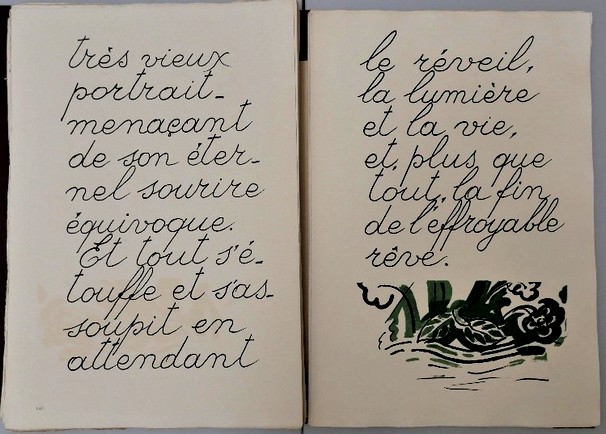 très vieux
portrait-
menaçant
de son éter-
nel sourire
équivoque.
Et tout s'é-
touffe et s'as-
soupit en
attendant
le réveil,
la lumière
et la vie,
et, plus que
tout, la fin
de l'effroyable
rêve.